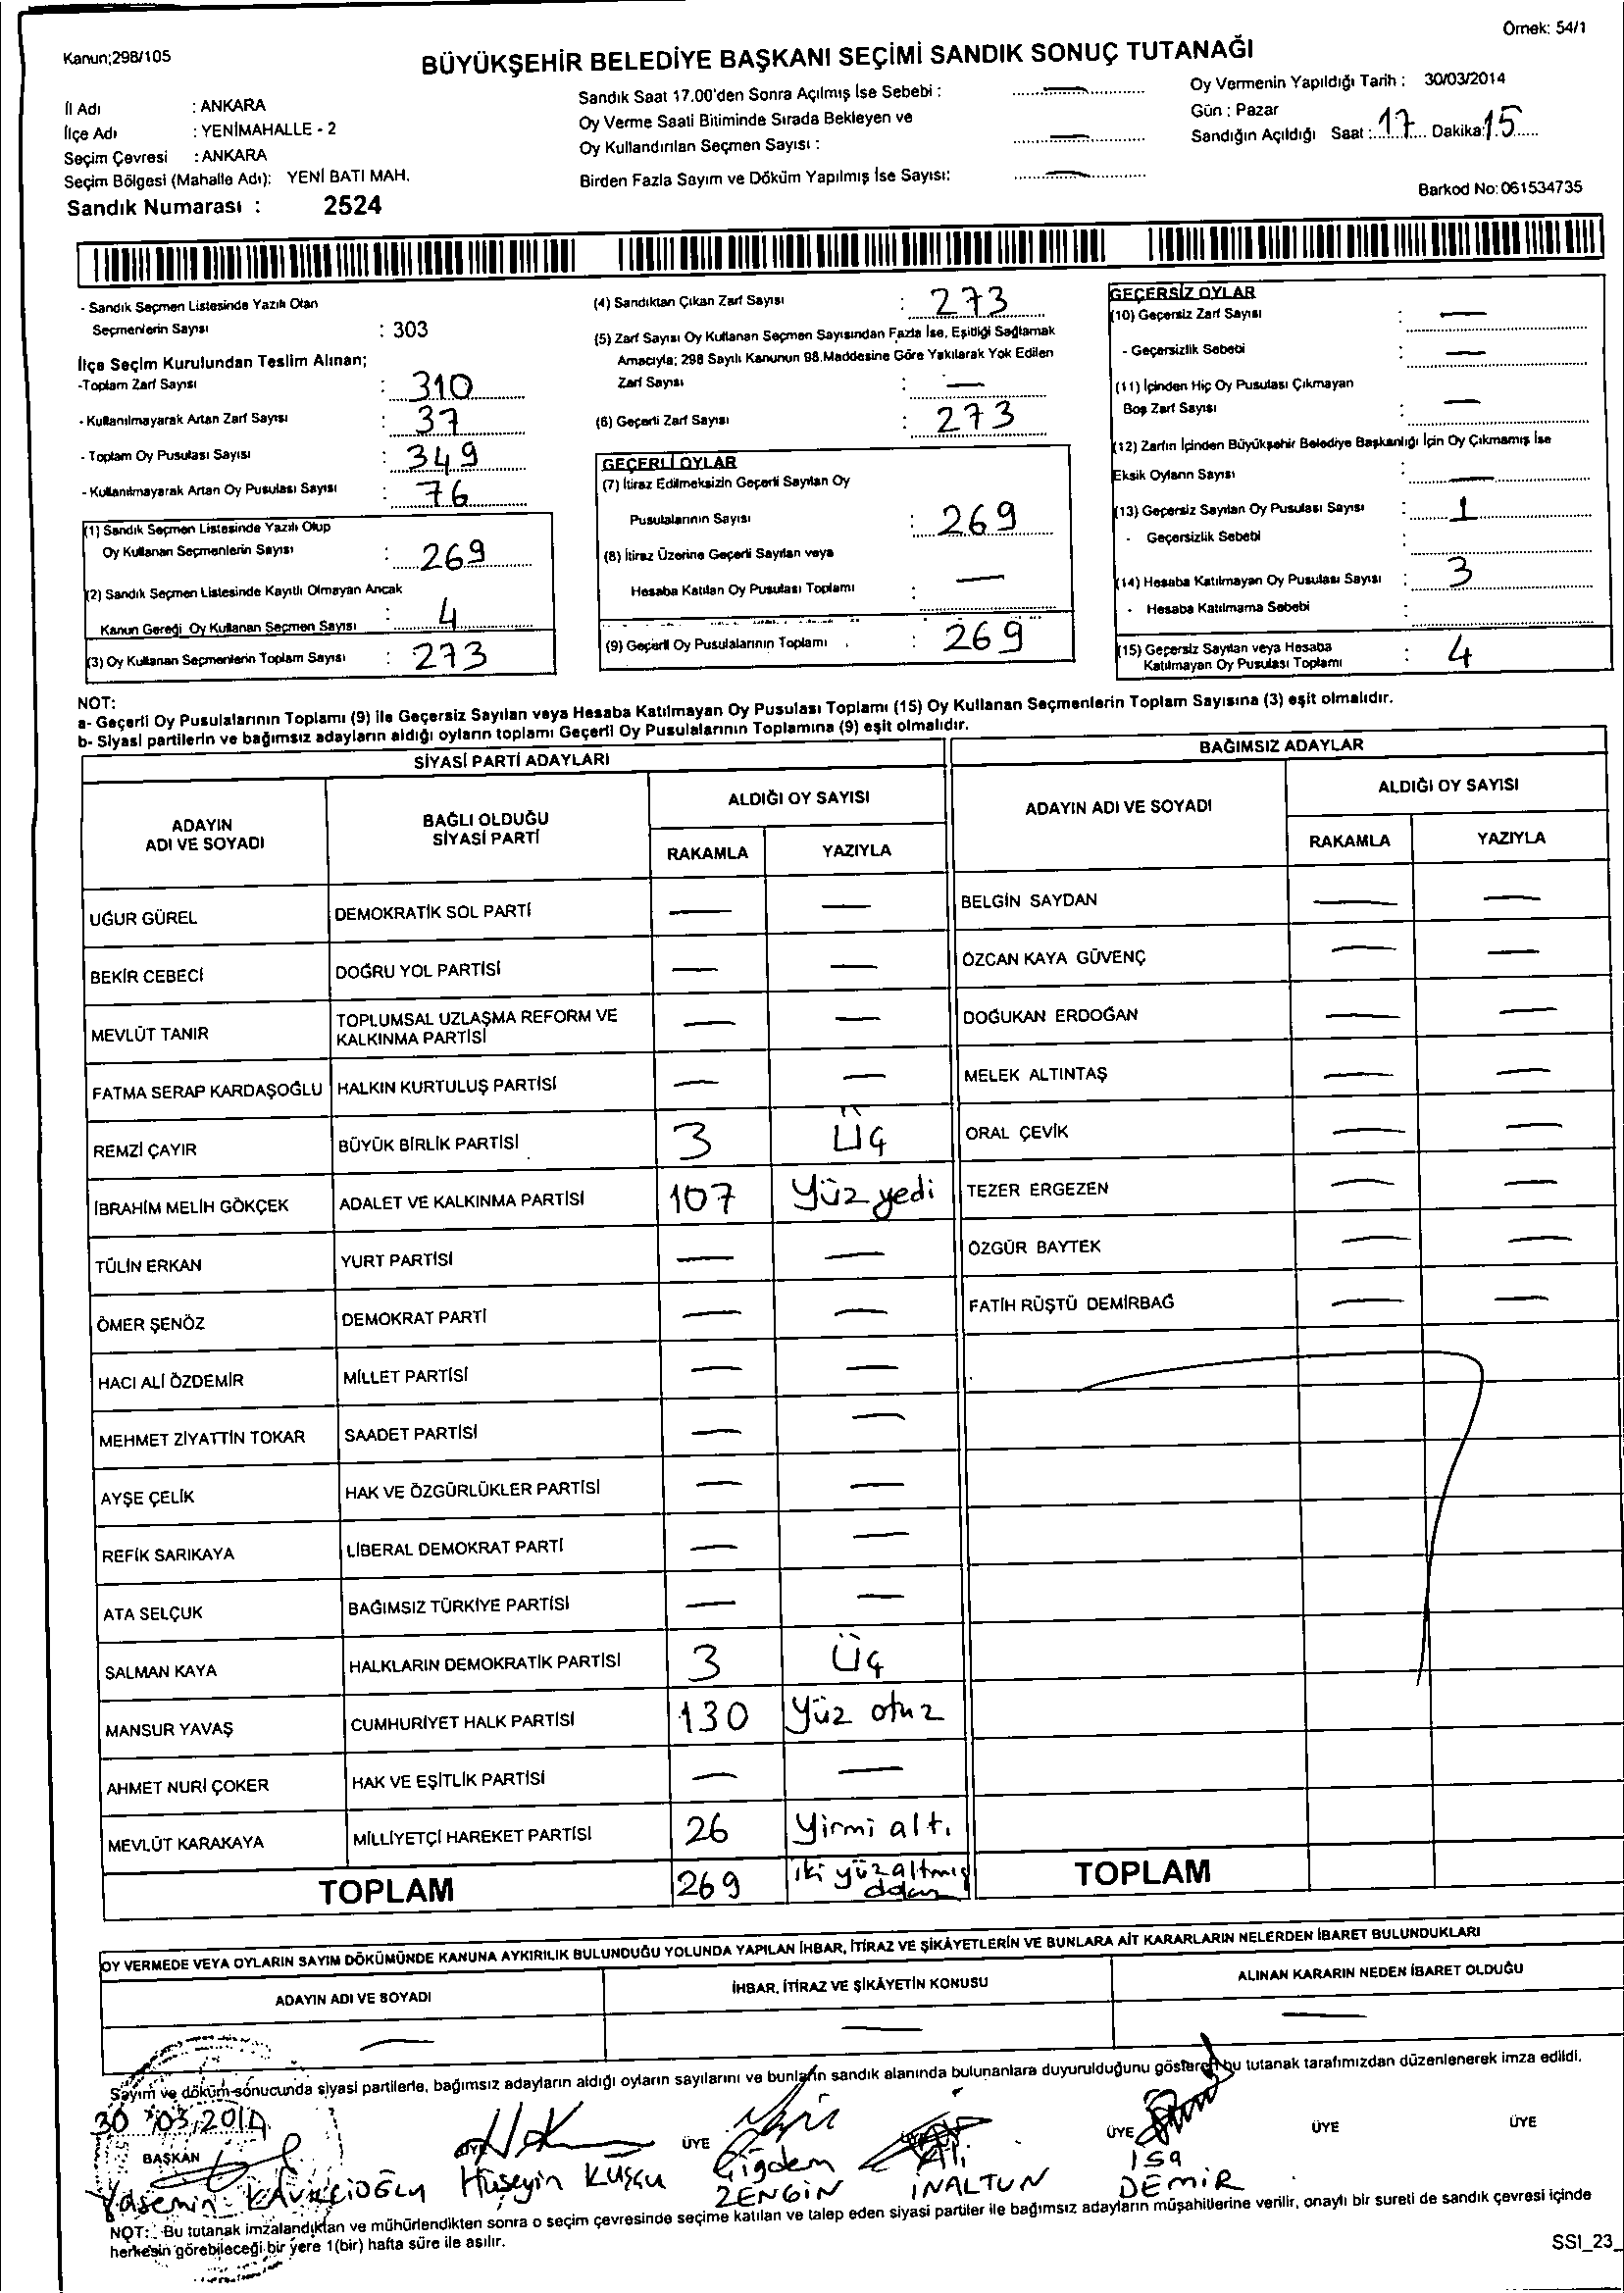 Örnek: 54/1
Kanun;298/105
BÜYÜKŞEHİR BELEDİYE BAŞKANI SEÇİMİ SANDIK SONUÇ TUTANAĞI
İl Adı : ANKARA
İlçe Adı : YENİMAHALLE - 2
Seçim Çevresi : ANKARA
Seçim Bölgesi (Mahalle Adı): YENİ BATI MAH.
Sandık Numarası : 2524
Sandık Saat 17.00'den Sonra Açılmış İse Sebebi : —
Oy Verme Saati Bitiminde Sırada Bekleyen ve
Oy Kullandırılan Seçmen Sayısı : —
Birden Fazla Sayım ve Döküm Yapılmış İse Sayısı: —
Oy Vermenin Yapıldığı Tarih : 30/03/2014
Gün : Pazar
Sandığın Açıldığı Saat : 17 Dakika: 15
Barkod No: 061534735
- Sandık Seçmen Listesinde Yazılı Olan
Seçmenlerin Sayısı : 303
İlçe Seçim Kurulundan Teslim Alınan;
-Toplam Zarf Sayısı : 310
- Kullanılmayarak Artan Zarf Sayısı : 37
- Toplam Oy Pusulası Sayısı : 349
- Kullanılmayarak Artan Oy Pusulası Sayısı : 76
(1) Sandık Seçmen Listesinde Yazılı Olup
Oy Kullanan Seçmenlerin Sayısı : 269
(2) Sandık Seçmen Listesinde Kayıtlı Olmayan Ancak
Kanun Gereği Oy Kullanan Seçmen Sayısı : 4
(3) Oy Kullanan Seçmenlerin Toplam Sayısı : 273
(4) Sandıktan Çıkan Zarf Sayısı : 273
(5) Zarf Sayısı Oy Kullanan Seçmen Sayısından Fazla İse, Eşitliği Sağlamak
Amacıyla; 298 Sayılı Kanunun 98.Maddesine Göre Yakılarak Yok Edilen
Zarf Sayısı : —
(6) Geçerli Zarf Sayısı : 273
GEÇERLİ OYLAR
(7) İtiraz Edilmeksizin Geçerli Sayılan Oy
Pusulalarının Sayısı : 269
(8) İtiraz Üzerine Geçerli Sayılan veya
Hesaba Katılan Oy Pusulası Toplamı : —
(9) Geçerli Oy Pusulalarının Toplamı : 269
GEÇERSİZ OYLAR
(10) Geçersiz Zarf Sayısı : —
- Geçersizlik Sebebi : —
(11) İçinden Hiç Oy Pusulası Çıkmayan
Boş Zarf Sayısı : —
(12) Zarfın İçinden Büyükşehir Belediye Başkanlığı İçin Oy Çıkmamış İse
Eksik Oyların Sayısı : —
(13) Geçersiz Sayılan Oy Pusulası Sayısı : 1
- Geçersizlik Sebebi :
(14) Hesaba Katılmayan Oy Pusulası Sayısı : 3
- Hesaba Katılmama Sebebi :
(15) Geçersiz Sayılan veya Hesaba
Katılmayan Oy Pusulası Toplamı : 4
NOT:
a- Geçerli Oy Pusulalarının Toplamı (9) ile Geçersiz Sayılan veya Hesaba Katılmayan Oy Pusulası Toplamı (15) Oy Kullanan Seçmenlerin Toplam Sayısına (3) eşit olmalıdır.
b- Siyasi partilerin ve bağımsız adayların aldığı oyların toplamı Geçerli Oy Pusulalarının Toplamına (9) eşit olmalıdır.
SİYASİ PARTİ ADAYLARI
ADAYIN ADI VE SOYADI
BAĞLI OLDUĞU SİYASİ PARTİ
ALDIĞI OY SAYISI
RAKAMLA YAZIYLA
UĞUR GÜREL DEMOKRATİK SOL PARTİ — —
BEKİR CEBECİ DOĞRU YOL PARTİSİ — —
MEVLÜT TANIR TOPLUMSAL UZLAŞMA REFORM VE KALKINMA PARTİSİ — —
FATMA SERAP KARDAŞOĞLU HALKIN KURTULUŞ PARTİSİ — —
REMZİ ÇAYIR BÜYÜK BİRLİK PARTİSİ 3 Üç
İBRAHİM MELİH GÖKÇEK ADALET VE KALKINMA PARTİSİ 107 Yüz yedi
TÜLİN ERKAN YURT PARTİSİ — —
ÖMER ŞENÖZ DEMOKRAT PARTİ — —
HACI ALİ ÖZDEMİR MİLLET PARTİSİ — —
MEHMET ZİYATTİN TOKAR SAADET PARTİSİ — —
AYŞE ÇELİK HAK VE ÖZGÜRLÜKLER PARTİSİ — —
REFİK SARIKAYA LİBERAL DEMOKRAT PARTİ — —
ATA SELÇUK BAĞIMSIZ TÜRKİYE PARTİSİ — —
SALMAN KAYA HALKLARIN DEMOKRATİK PARTİSİ 3 Üç
MANSUR YAVAŞ CUMHURİYET HALK PARTİSİ 130 Yüz otuz
AHMET NURİ ÇOKER HAK VE EŞİTLİK PARTİSİ — —
MEVLÜT KARAKAYA MİLLİYETÇİ HAREKET PARTİSİ 26 Yirmi altı
TOPLAM 269 iki yüz altmış dokuz
BAĞIMSIZ ADAYLAR
ADAYIN ADI VE SOYADI
ALDIĞI OY SAYISI
RAKAMLA YAZIYLA
BELGİN SAYDAN — —
ÖZCAN KAYA GÜVENÇ — —
DOĞUKAN ERDOĞAN — —
MELEK ALTINTAŞ — —
ORAL ÇEVİK — —
TEZER ERGEZEN — —
ÖZGÜR BAYTEK — —
FATİH RÜŞTÜ DEMİRBAĞ — —
TOPLAM
OY VERMEDE VEYA OYLARIN SAYIM DÖKÜMÜNDE KANUNA AYKIRILIK BULUNDUĞU YOLUNDA YAPILAN İHBAR, İTİRAZ VE ŞİKÂYETLERİN VE BUNLARA AİT KARARLARIN NELERDEN İBARET BULUNDUKLARI
ADAYIN ADI VE SOYADI İHBAR, İTİRAZ VE ŞİKÂYETİN KONUSU ALINAN KARARIN NEDEN İBARET OLDUĞU
— — —
Sayım ve döküm sonucunda siyasi partilerle, bağımsız adayların aldığı oyların sayılarını ve bunların sandık alanında bulunanlara duyurulduğunu gösteren bu tutanak tarafımızdan düzenlenerek imza edildi.
30/03/2014
BAŞKAN ÜYE ÜYE ÜYE ÜYE ÜYE
Yasemin Hüseyin KUŞÇU Çiğdem ZENGİN Ali İNALTUN İSA DEMİR
NOT: Bu tutanak imzalandıktan ve mühürlendikten sonra o seçim çevresinde seçime katılan ve talep eden siyasi partiler ile bağımsız adayların müşahitlerine verilir, onaylı bir sureti de sandık çevresi içinde
herkesin görebileceği bir yere 1(bir) hafta süre ile asılır.
SSI_23_